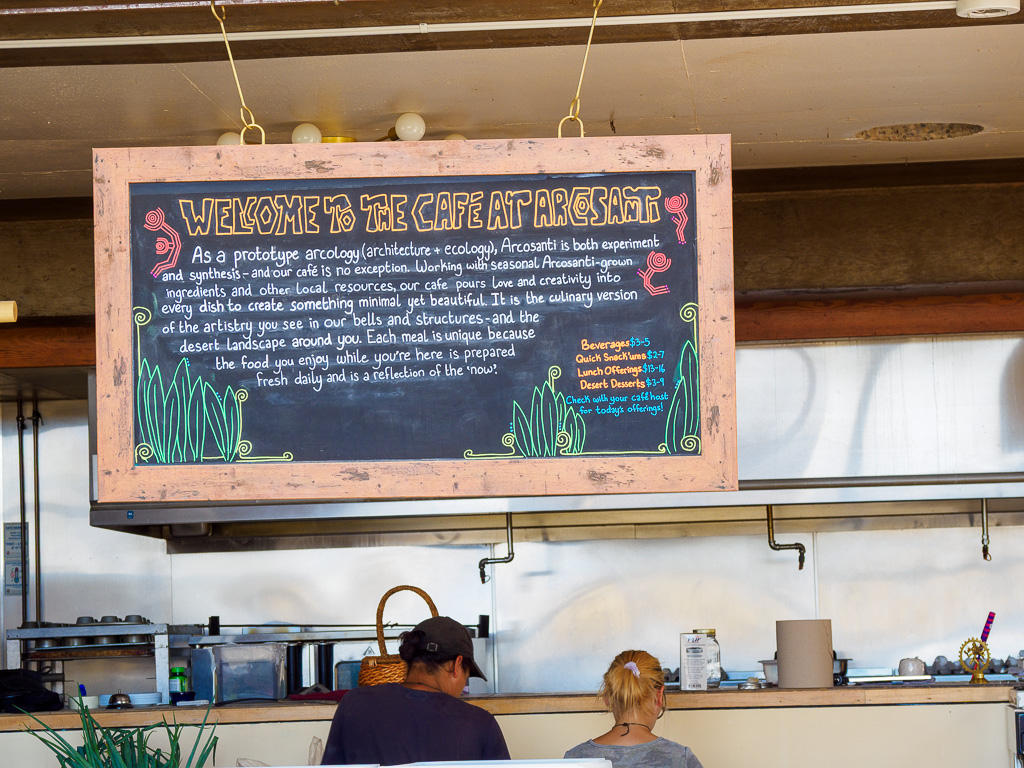 WELCOME TO THE CAFÉ AT ARCOSANTI
As a prototype arcology (architecture + ecology), Arcosanti is both experiment
and synthesis - and our café is no exception. Working with seasonal Arcosanti-grown
ingredients and other local resources, our cafe pours love and creativity into
every dish to create something minimal yet beautiful. It is the culinary version
of the artistry you see in our bells and structures - and the
desert landscape around you. Each meal is unique because
the food you enjoy while you're here is prepared
fresh daily and is a reflection of the 'now'.
Beverages $3-5
Quick Snack'ums $2-7
Lunch Offerings $13-16
Desert Desserts $3-9
Check with your café host
for today's offerings!